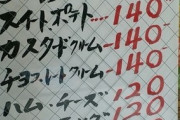 スイートポテト 140
カスタードクリーム 140
チョコレートクリーム 140
ハム・チーズ 120
120